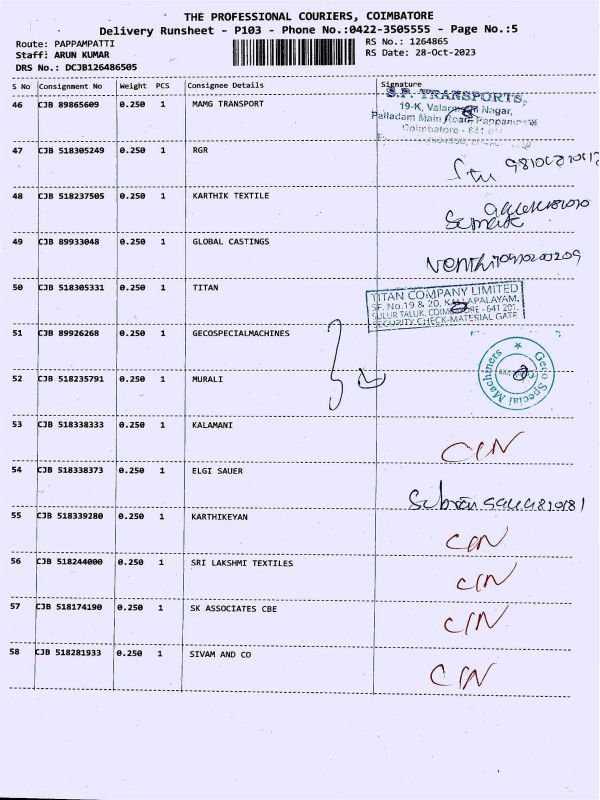 THE PROFESSIONAL COURIERS, COIMBATORE
Delivery Runsheet - P103 - Phone No.:0422-3505555 - Page No.:5
Route: PAPPAMPATTI
Staff: ARUN KUMAR
DRS No.: DCJB126486505
RS No.: 1264865
RS Date: 28-Oct-2023
S No Consignment No Weight PCS Consignee Details Signature
46 CJB 89865609 0.250 1 MAMG TRANSPORT
S.P. TRANSPORTS,
19-K, Nagar,
Palladam Main Road,
Coimbatore - 641
47 CJB 518305249 0.250 1 RGR
48 CJB 518237505 0.250 1 KARTHIK TEXTILE
49 CJB 89933048 0.250 1 GLOBAL CASTINGS
50 CJB 518305331 0.250 1 TITAN
TITAN COMPANY LIMITED
SF. No.19 & 20, KALLAPALAYAM,
SULUR TALUK, COIMBATORE - 641 201.
SECURITY CHECK-MATERIAL GATE
51 CJB 89926268 0.250 1 GECOSPECIALMACHINES
Geco Special Machiners
52 CJB 518235791 0.250 1 MURALI
53 CJB 518338333 0.250 1 KALAMANI
CIN
54 CJB 518338373 0.250 1 ELGI SAUER
55 CJB 518339280 0.250 1 KARTHIKEYAN
CIN
56 CJB 518244000 0.250 1 SRI LAKSHMI TEXTILES
CIN
57 CJB 518174190 0.250 1 SK ASSOCIATES CBE
CIN
58 CJB 518281933 0.250 1 SIVAM AND CO
CIN